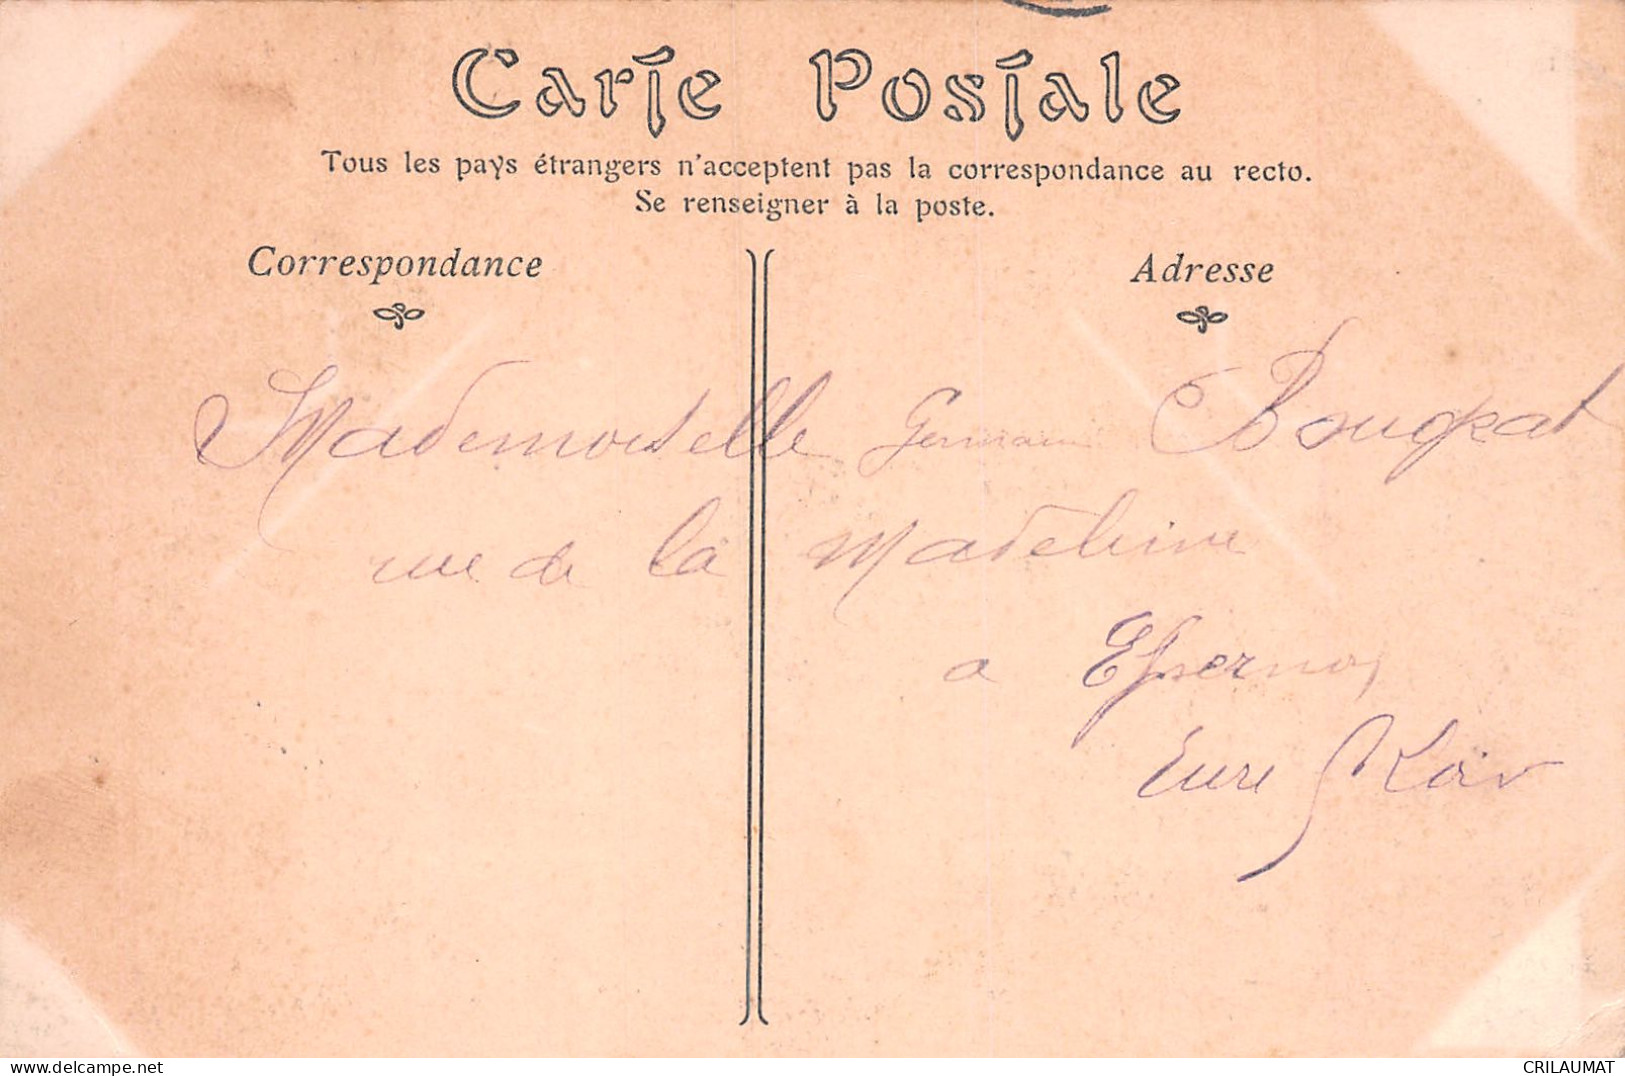 Carte Postale
Tous les pays étrangers n'acceptent pas la correspondance au recto.
Se renseigner à la poste.
Correspondance
Adresse
Mademoiselle Germaine
rue de la Madeleine
a Epernon
Eure & Loir
delcampe.net
CRILAUMAT